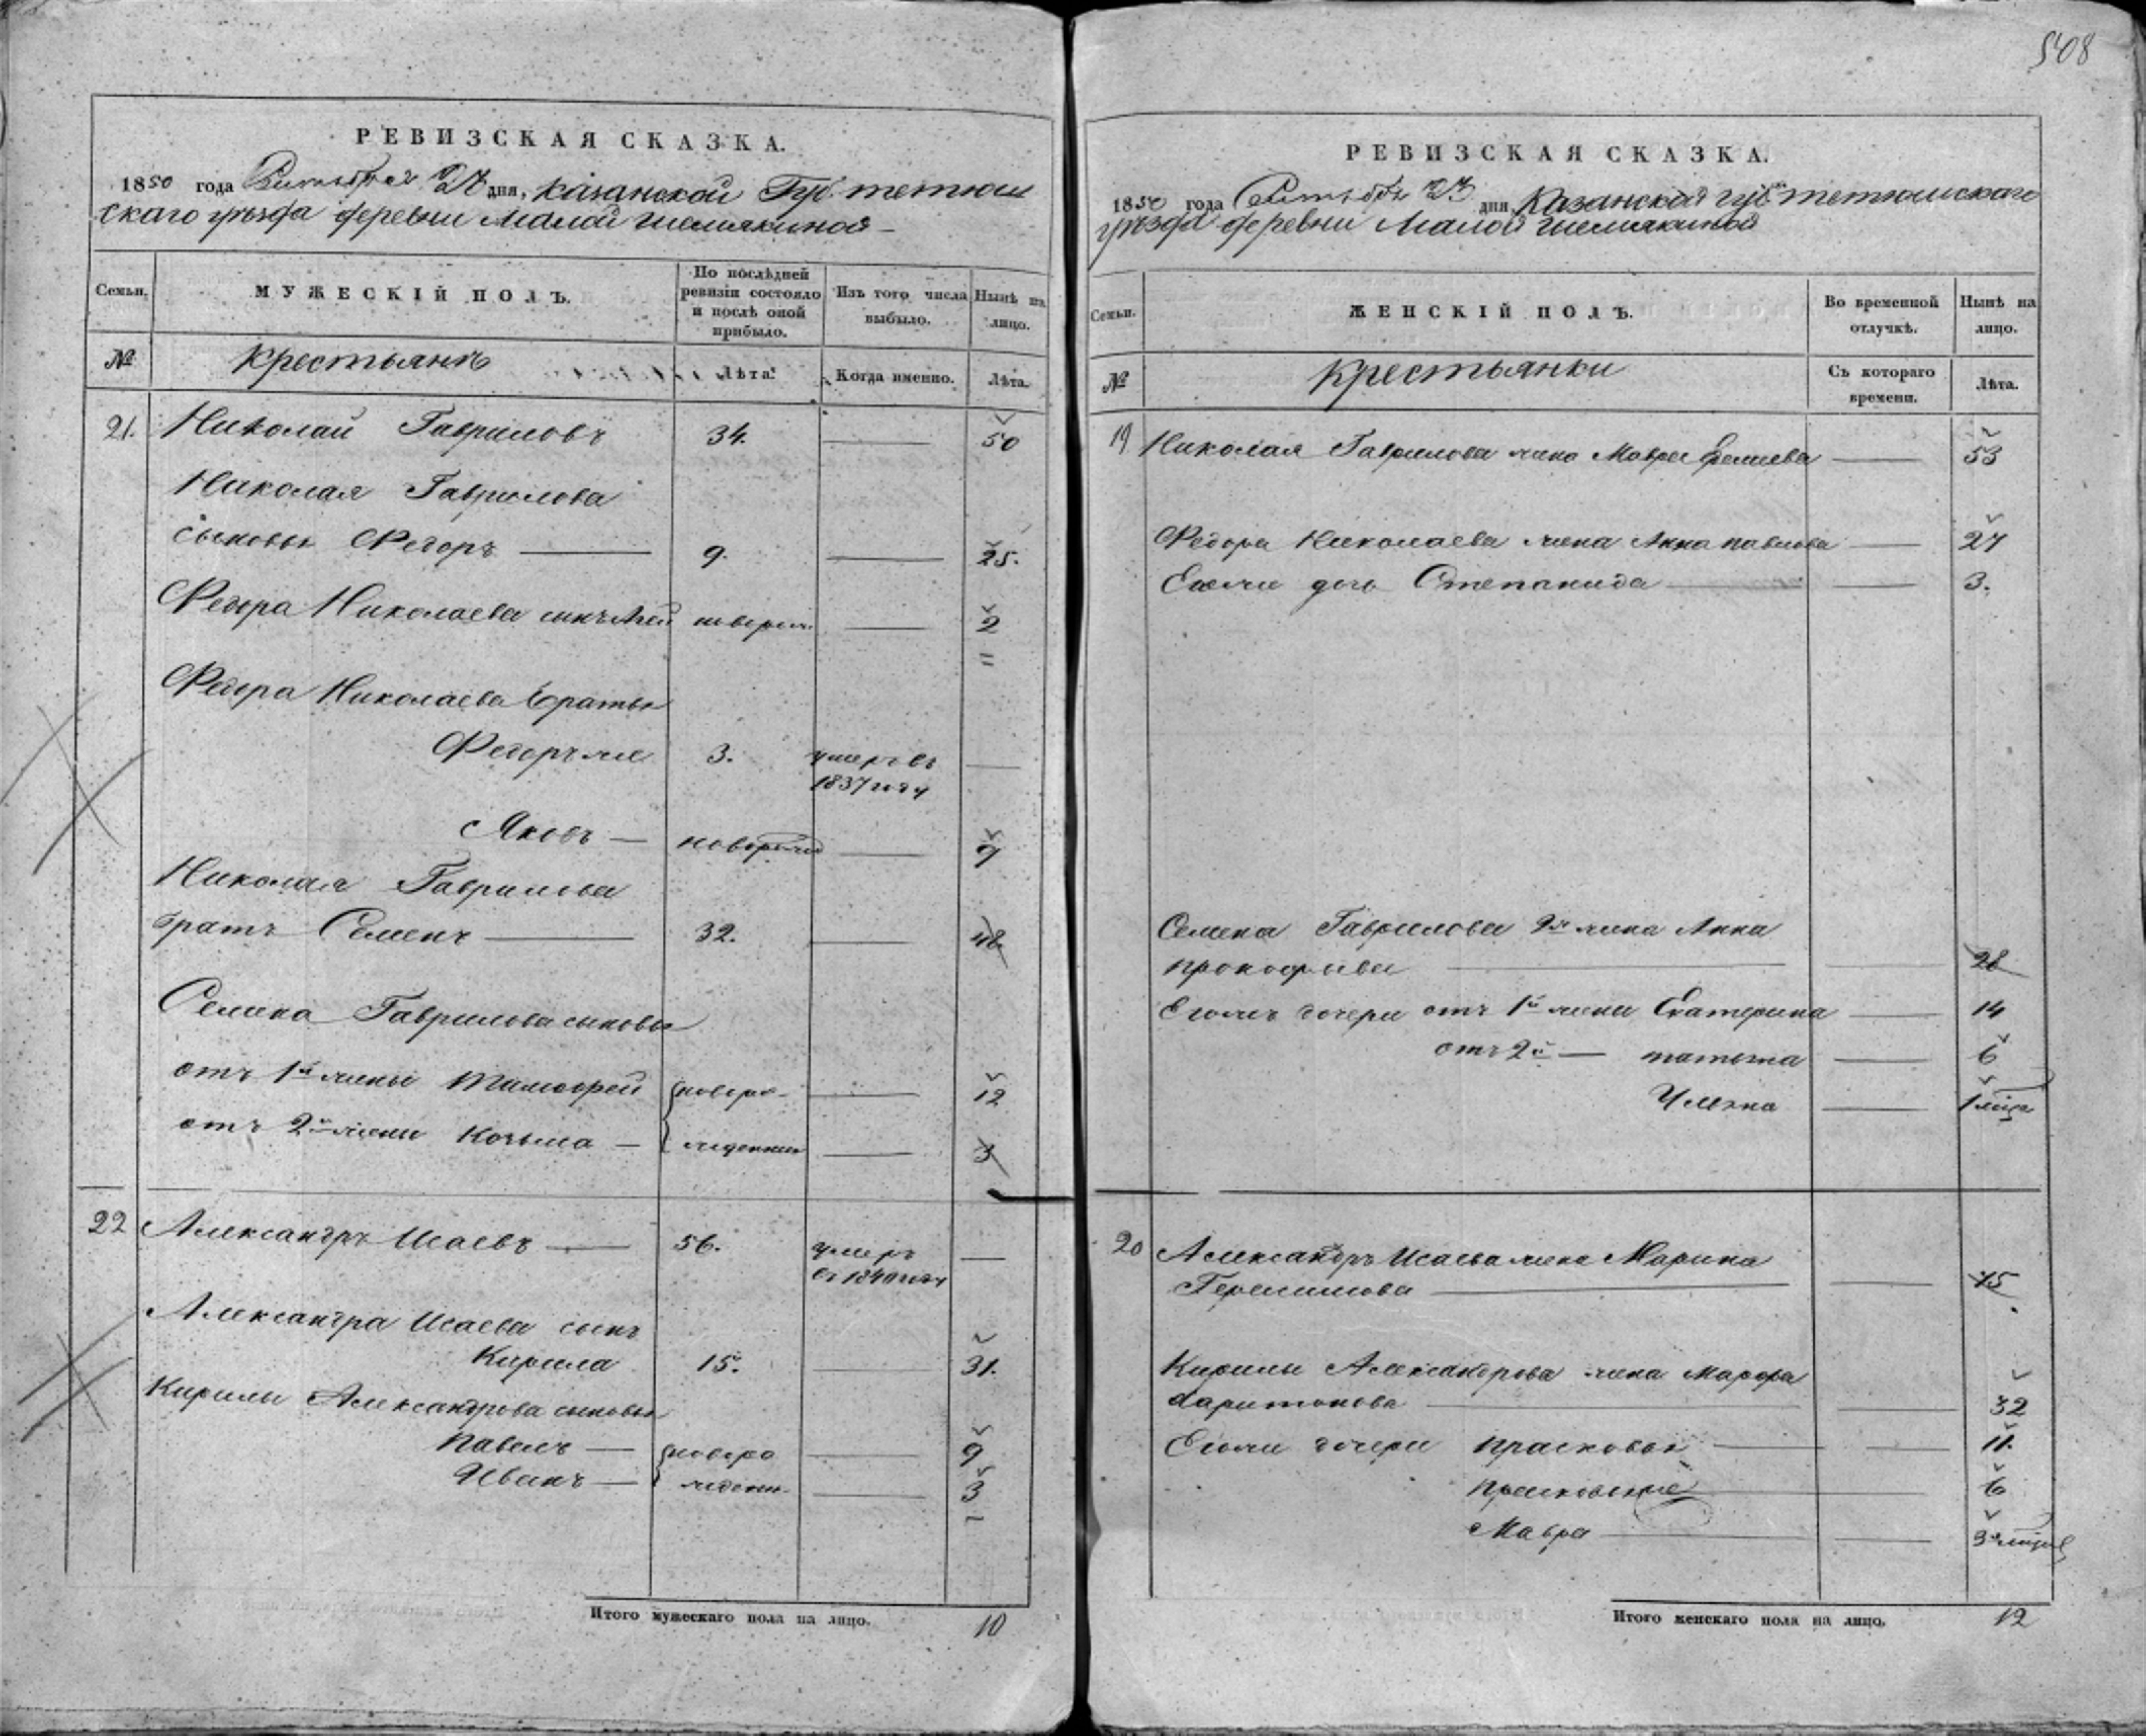 508
РЕВИЗСКАЯ СКАЗКА.
1850 года Сентября 27 дня, Казанской Губ. тетюш
скаго уѣзда деревни Малой Шемякиной
Семьи.
МУЖЕСКІЙ ПОЛЪ.
По послѣдней ревизіи состояло и послѣ оной прибыло.
Изъ того числа выбыло.
Нынѣ на лицо.
№
Крестьянъ
Лѣта.
Когда именно.
Лѣта.
21. Николай Гавриловъ 34. 50
Николая Гаврилова
сыновья Федоръ 9. 25.
Федора Николаева сынъ 2
Федора Николаева братья
Федоръ же 3. умеръ въ
1837 году
Яковъ новорожд 9
Николая Гаврилова
братъ Семенъ 32. 48
Семена Гаврилова сыновья
отъ 1й жены Тимофей новоро- 12
отъ 2й жены Козьма жденные 3
22 Александръ Исаевъ 56. умеръ
въ 1840 году
Александра Исаева сынъ
Кирила 15. 31.
Кирилы Александрова сыновья
Павелъ новоро 9
Иванъ жденн. 3
Итого мужескаго пола на лицо. 10
РЕВИЗСКАЯ СКАЗКА.
1850 года Сентября дня Казанской губ. тетюшскаго
уѣзда деревни Малой Шемякиной
Семьи.
ЖЕНСКІЙ ПОЛЪ.
Во временной отлучкѣ.
Нынѣ на лицо.
№
Крестьянки
Съ котораго времени.
Лѣта.
19 Николая Гаврилова жена Мавра Еремеева 53
Федора Николаева жена Анна Павлова 27
Ево дочь Степанида 3.
Семена Гаврилова 2я жена Анна
Прокофьева 28
Его дочери отъ 1й жены Екатерина 14
отъ 2й татьяна 6
20 Александръ Исаева жена Марина
Герасимова 75
Кирилы Александрова жена Марфа
Харитонова 32
дочери Прасковья 11.
Прасковья же 6
Мавра
Итого женскаго пола на лицо. 12